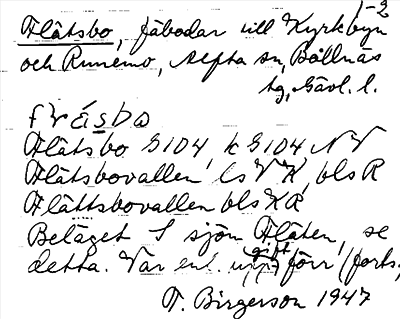 1-2
Flåtsbo, fäbodar till Kyrkbyn
och Runemo, Alfta sn, Bollnäs
tg, Gävl. l.
fråsbo
Flåtsbo G104, k G104 NV
Flåtsbovallen ls VH, bls R
Flåttsbovallen bls HR
Beläget S sjön Flåten, se
detta. Var enl. uppgift förr (forts.
T. Birgerson 1947